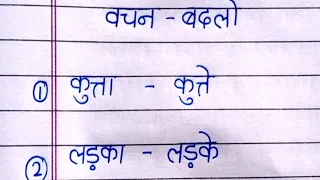 वचन - बदलो
① कुत्ता - कुत्ते
② लड़का - लड़के